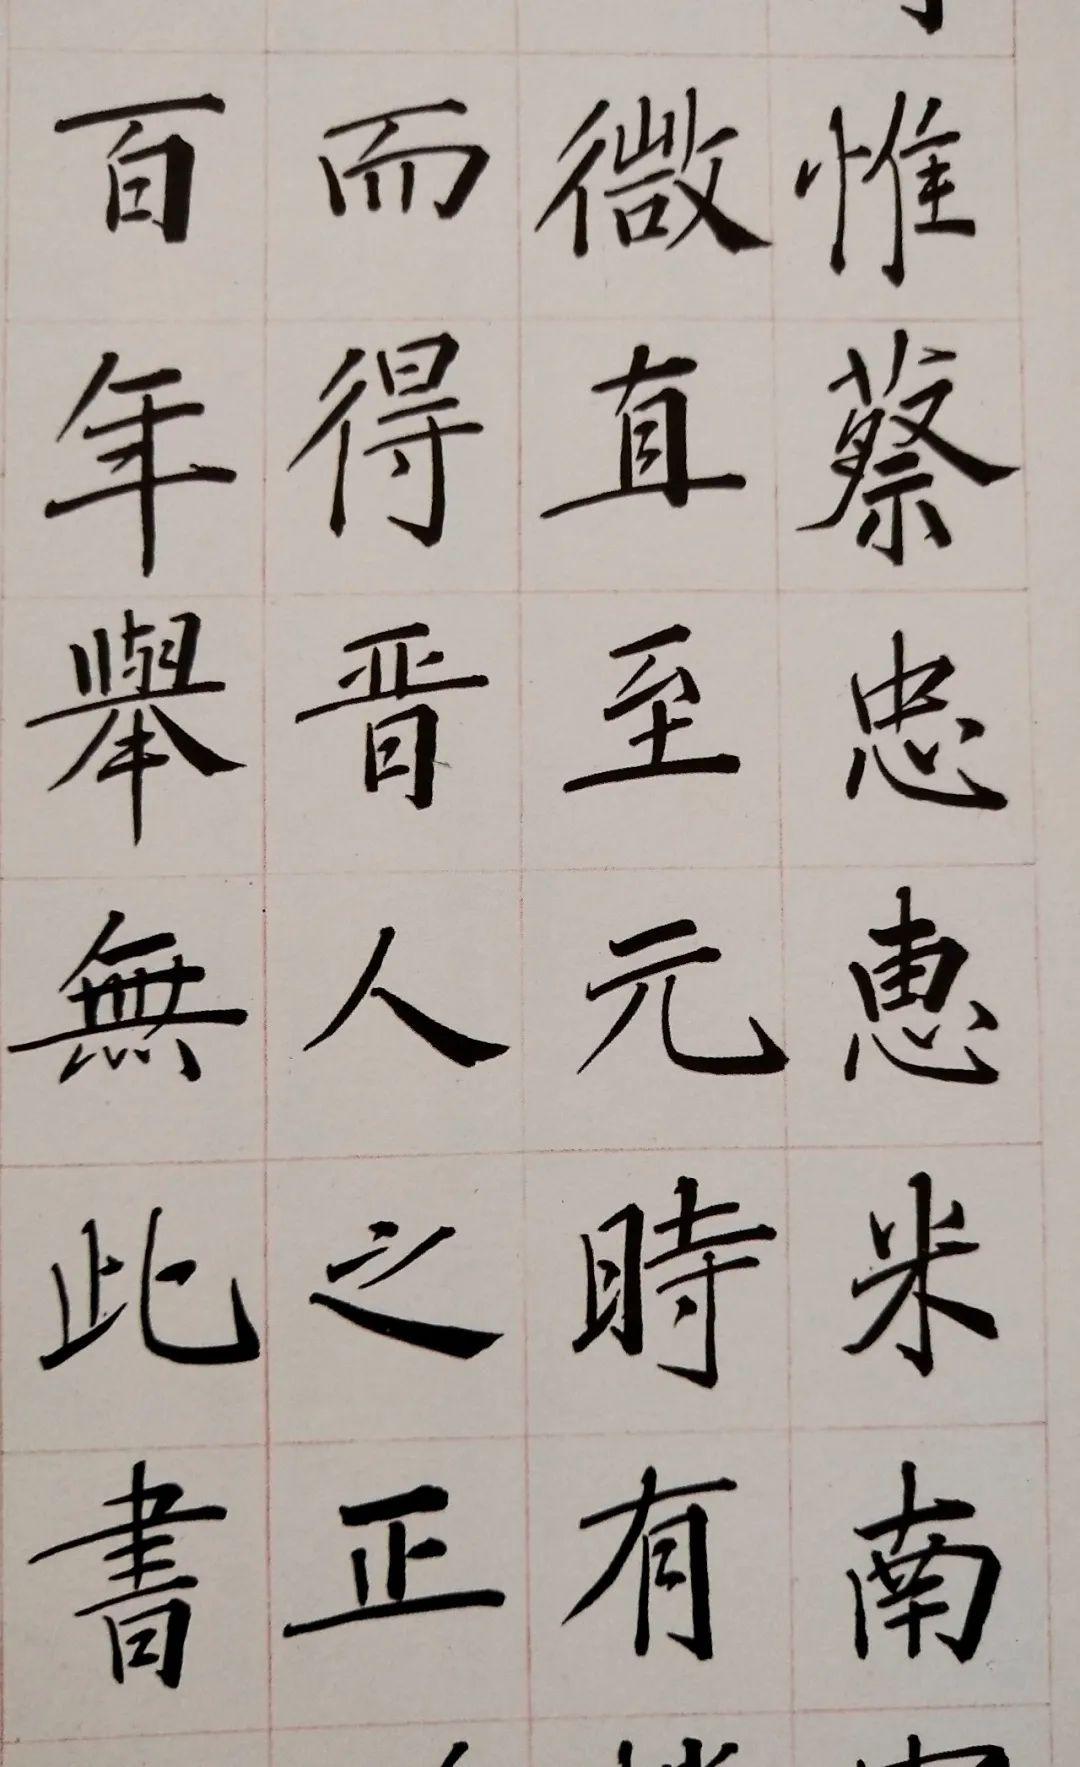 惟蔡忠惠米南
微直至元時有
而得晋人之正
百年舉無此書